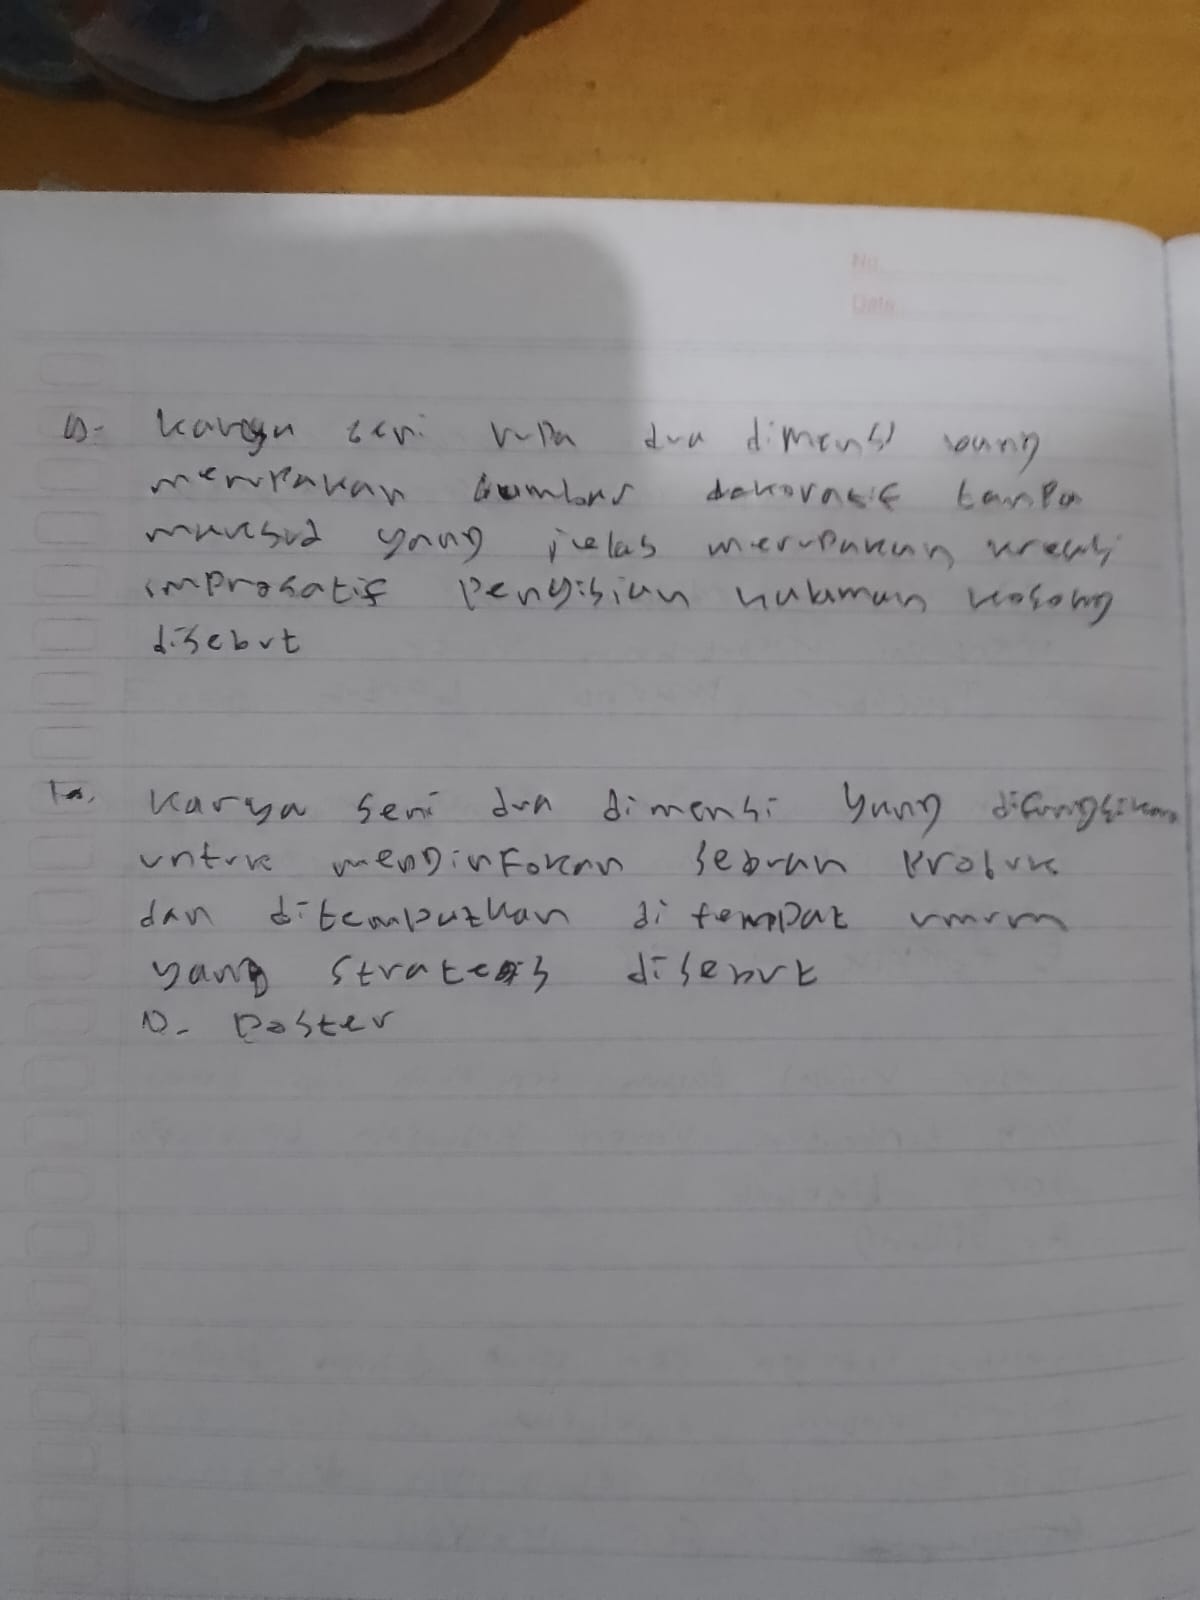 No.
Date
Karya seni rupa dua dimensi yang
merupakan gambar dekoratif tanpa
maksud yang jelas merupakan kreasi
improsatif pengisian halaman kosong
disebut
10. Karya seni dua dimensi yang difungsikan
untuk menginfokan sebuah produk
dan ditempatkan di tempat umum
yang strategis disebut
D. Poster